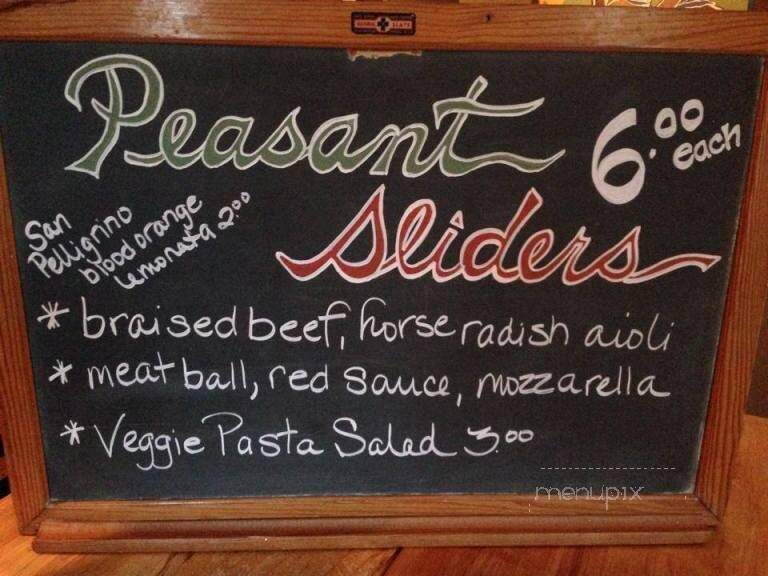 Peasant
6.00 each
Sliders
San
Pelligrino
blood orange
Lemonata 2.00
* braised beef, horseradish aioli
* meatball, red sauce, mozzarella
* Veggie Pasta Salad 3.00
menupix